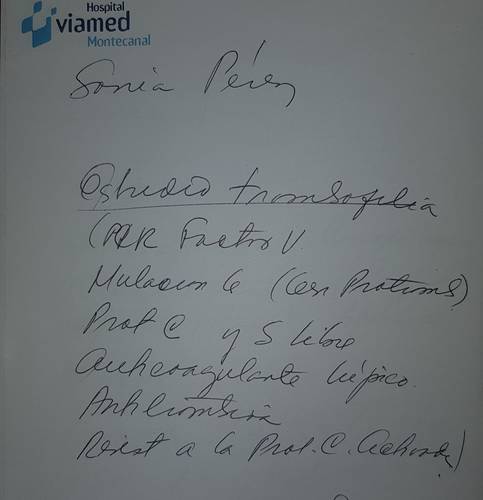 Hospital
viamed
Montecanal
Sonia Pérez
Estudio trombofilia
(PCR Factor V
Mutacion G (Gen Protromb)
Prot C y S libre
Anticoagulante lúpico.
Antitrombina
Resist a la Prot. C. Activada)